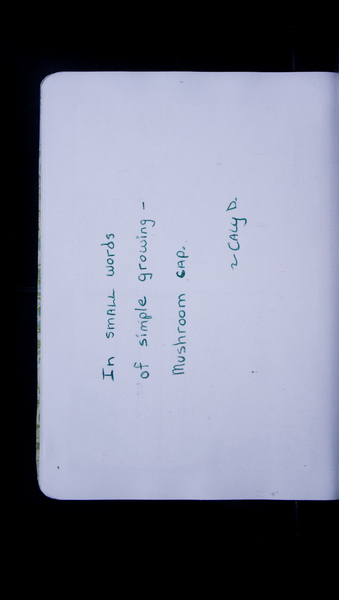 In smALL words
of simple growing –
Mushroom cAp.
~ CALy D.